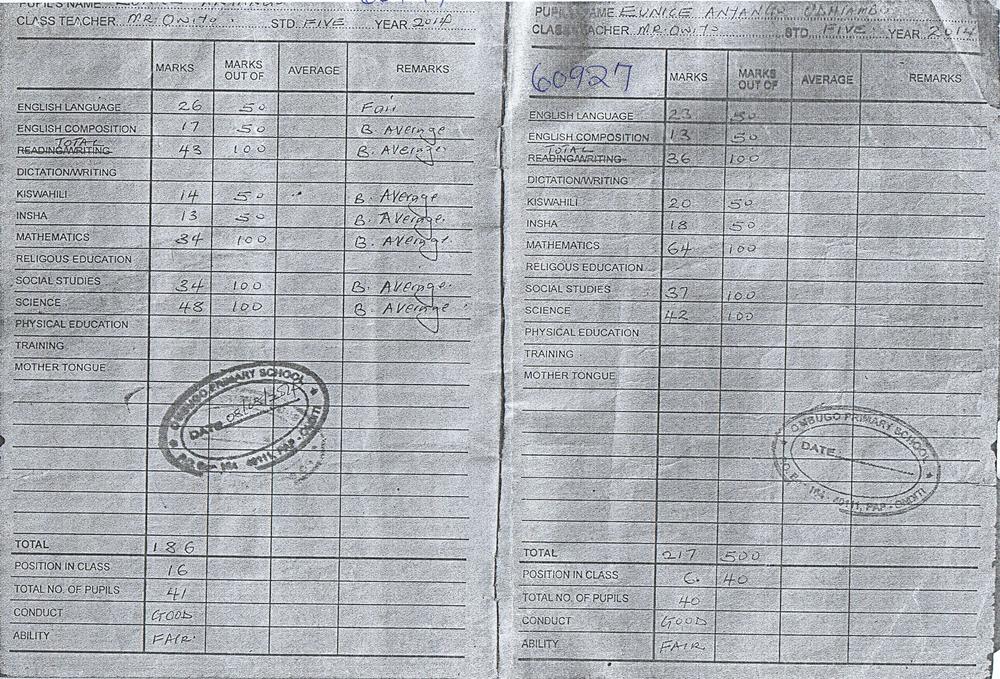 PUPIL'S NAME EUNICE
CLASS TEACHER MR ONITO STD. FIVE YEAR 2014
MARKS MARKS OUT OF AVERAGE REMARKS
ENGLISH LANGUAGE 26 50 Fair
ENGLISH COMPOSITION 17 50 B. Average
TOTAL
READING/WRITING 43 100 B. Average
DICTATION/WRITING
KISWAHILI 14 50 B. Average
INSHA 13 50 B. Average
MATHEMATICS 34 100 B. Average
RELIGOUS EDUCATION
SOCIAL STUDIES 34 100 B. Average
SCIENCE 48 100 B. Average
PHYSICAL EDUCATION
TRAINING
MOTHER TONGUE
OMBUGO PRIMARY SCHOOL
DATE
164 - 40111, PAP - ONDITI
TOTAL 186
POSITION IN CLASS 16
TOTAL NO. OF PUPILS 41
CONDUCT GOOD
ABILITY FAIR
PUPIL'S NAME EUNICE ANYANGO ODHIAMBO
CLASS TEACHER MR. ONITO STD. FIVE YEAR 2014
60927 MARKS MARKS OUT OF AVERAGE REMARKS
ENGLISH LANGUAGE 23 50
ENGLISH COMPOSITION 13 50
TOTAL
READING/WRITING 36 100
DICTATION/WRITING
KISWAHILI 20 50
INSHA 18 50
MATHEMATICS 64 100
RELIGIOUS EDUCATION
SOCIAL STUDIES 37 100
SCIENCE 42 100
PHYSICAL EDUCATION
TRAINING
MOTHER TONGUE
OMBUGO PRIMARY SCHOOL
DATE
P.O. B 164 - 40111, PAP - ONDITI
TOTAL 217 500
POSITION IN CLASS 6. 40
TOTAL NO. OF PUPILS 40
CONDUCT GOOD
ABILITY FAIR